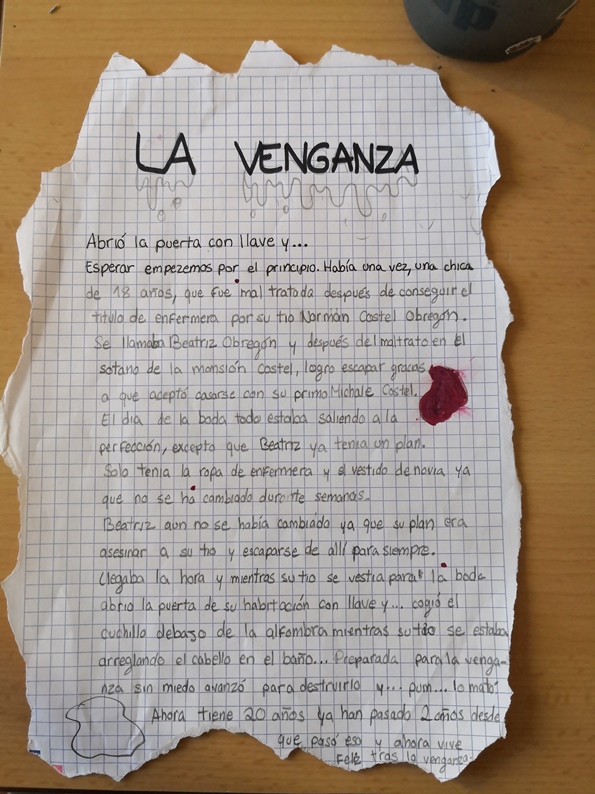 LA VENGANZA
Abrió la puerta con llave y...
Esperar empezemos por el principio. Había una vez, una chica
de 18 años, que fue mal tratada después de conseguir el
titulo de enfermera por su tio Norman Castel Obregón.
Se llamaba Beatriz Obregón y después del maltrato en el
sotano de la mansión Castel, logro escapar gracias
a que aceptó casarse con su primo Michale Castel.
El dia de la boda todo estaba saliendo a la
perfección, excepto que Beatriz ya tenia un plan.
Solo tenia la ropa de enfermera y el vestido de novia ya
que no se ha cambiado durante semanas.
Beatriz aun no se había cambiado ya que su plan era
asesinar a su tio y escaparse de allí para siempre.
Llegaba la hora y mientras su tio se vestia para la boda
abrio la puerta de su habitación con llave y... cogió el
cuchillo debajo de la alfombra mientras su tio se estaba
arreglando el cabello en el baño... Preparada para la venga-
nza sin miedo avanzó para destruirlo y... pum... lo mató.
Ahora tiene 20 años ya han pasado 2 años desde
que pasó eso y ahora vive
Feliz tras la venganza.